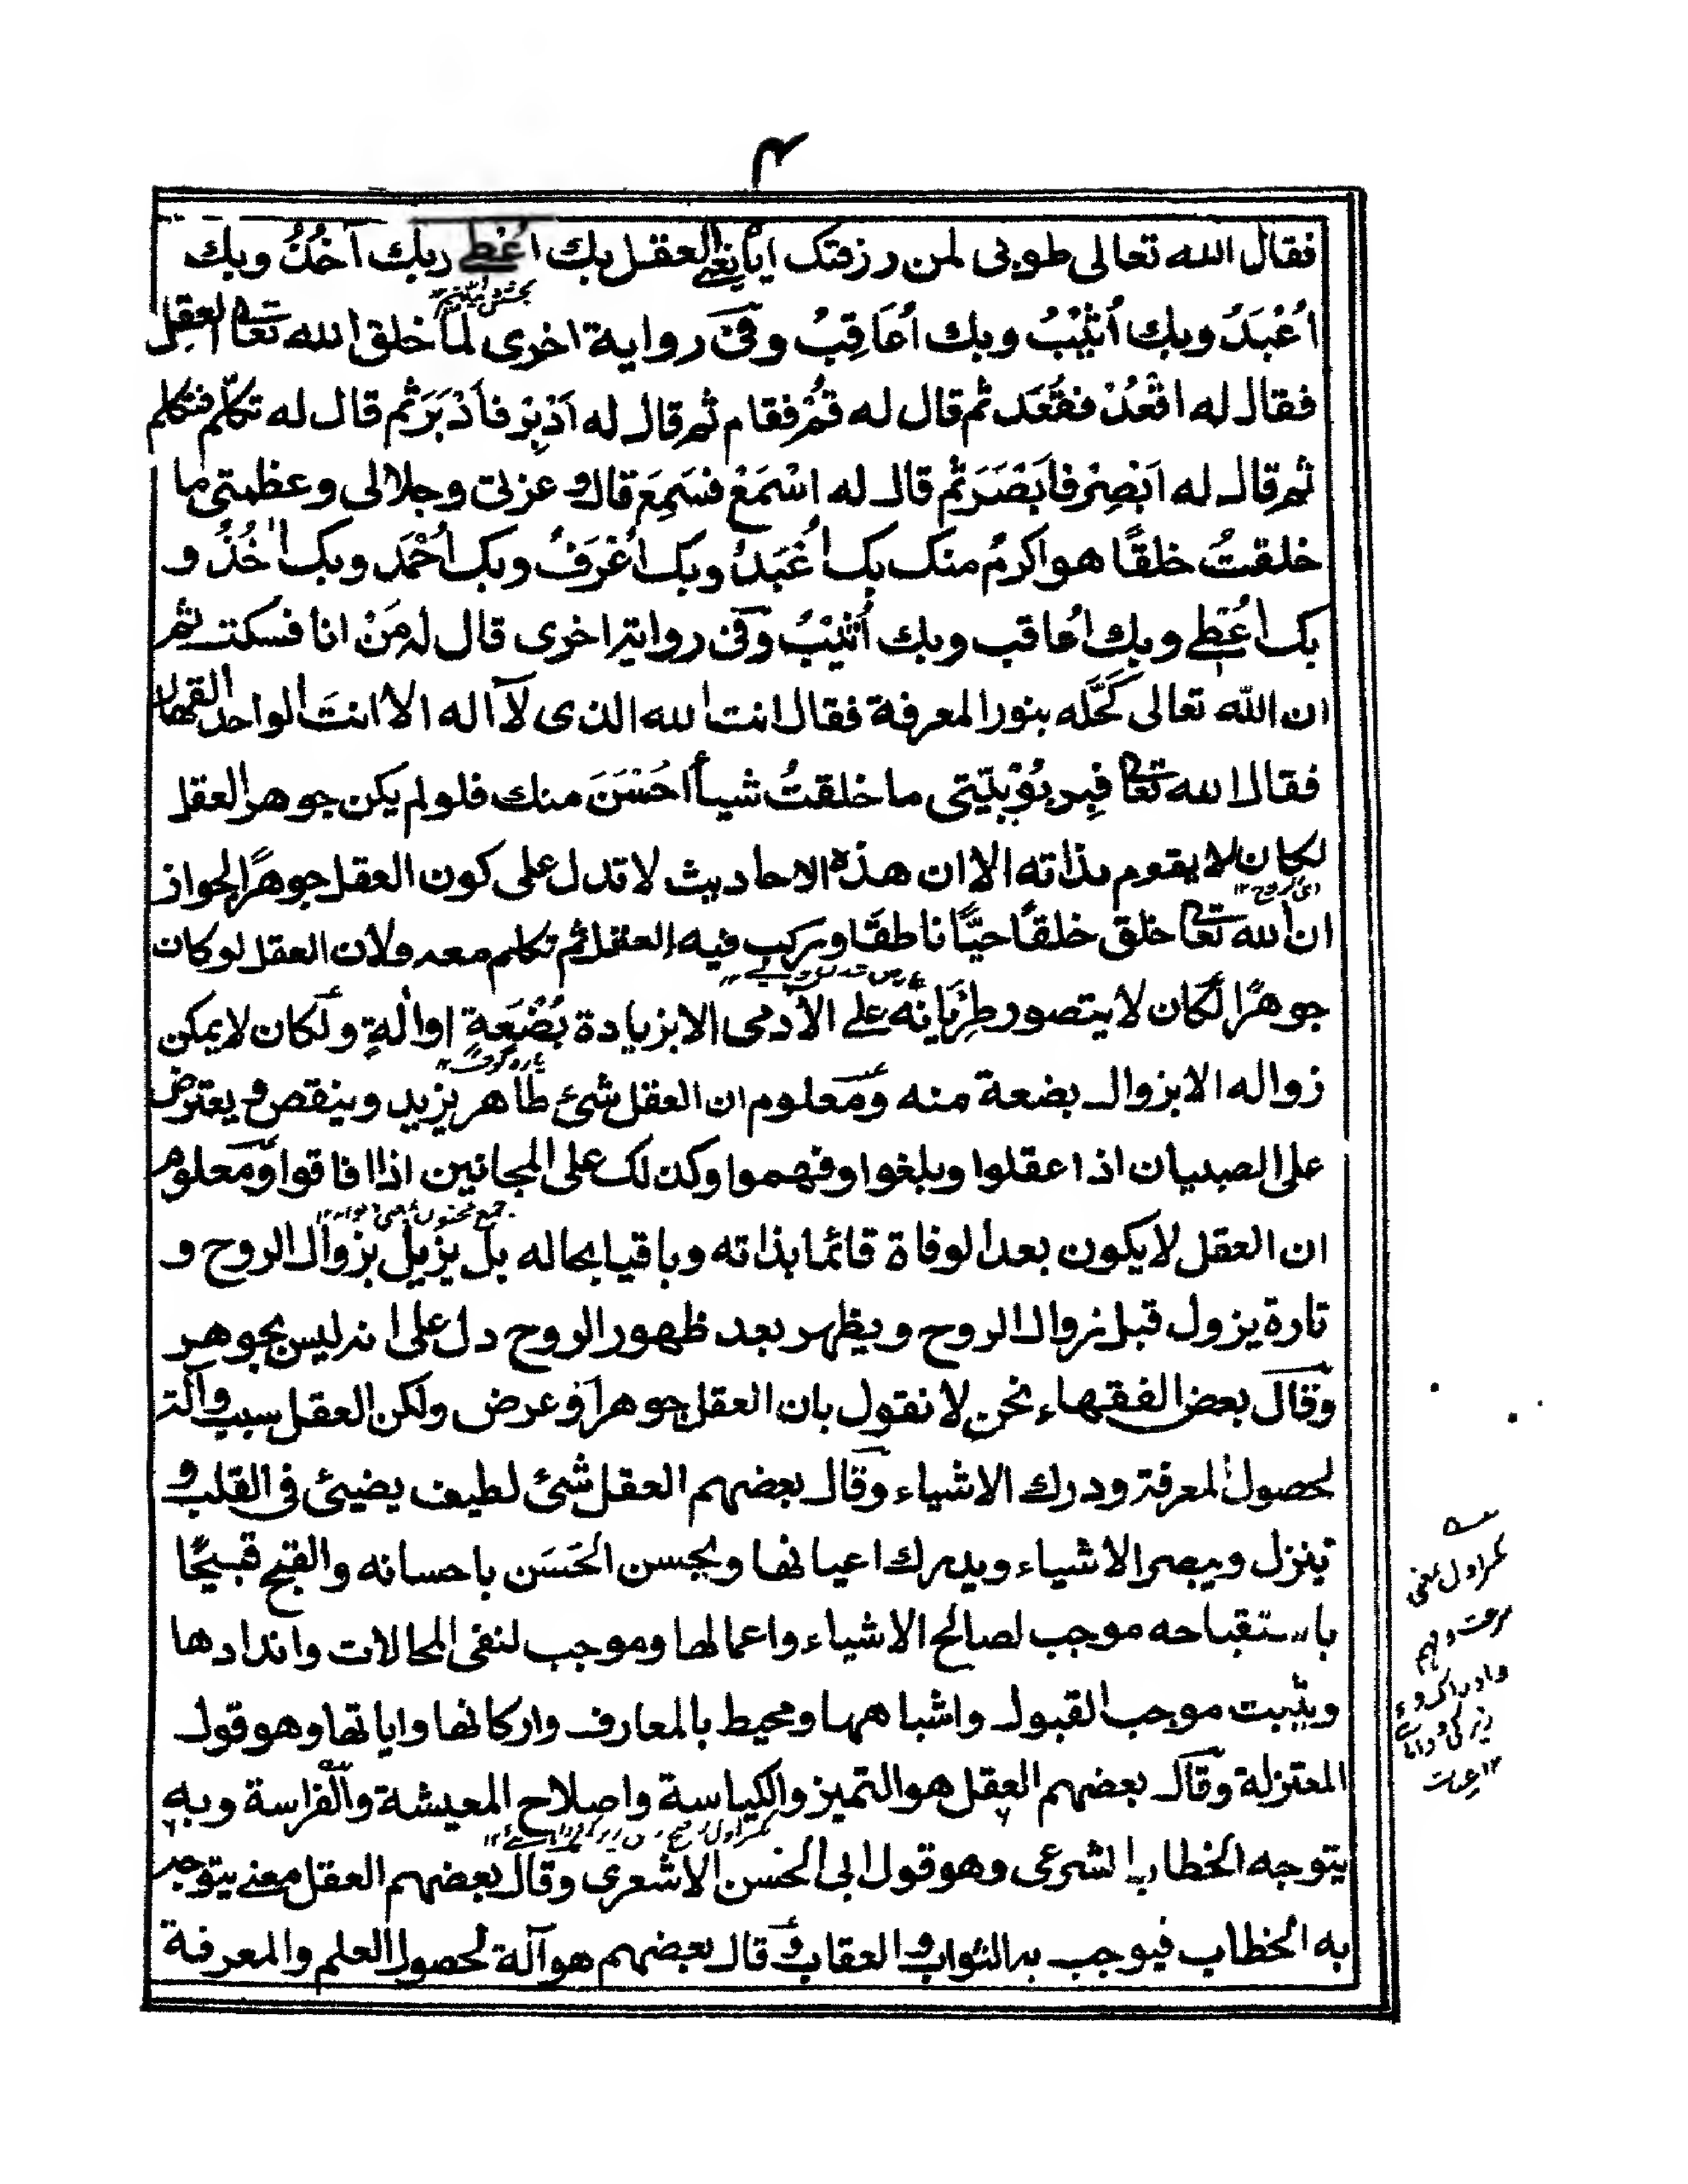 ٣
فقال الله تعالى طوبى لمن رزقتك اياه يعنى العقل بك اُعْطِى وبك آخُذُ وبك
اُعْبَدُ وبك اُثِيْبُ وبك اُعَاقِبُ وفى رواية اخرى لمّا خلق الله تعالى العقل
فقال له اقْعُدْ فقَعَد ثم قال له قُمْ فقام ثم قال له اَدْبِرْ فاَدْبَرَ ثم قال له تكلّم فتكلم
ثم قال له اَبْصِرْ فاَبْصَرَ ثم قال له اسْمَعْ فسَمِعَ قال و عزتى وجلالى وعظمتى ما
خلقتُ خلقًا هو اكرمُ منك بك اُعْبَدُ وبك اُعْرَفُ وبك اُحْمَد وبك اٰخُذُ و
بك اُعْطِى وبك اُعاقب وبك اُثِيْبُ وفى رواية اخرى قال له مَنْ انا فسكت ثم
ان الله تعالى كَحَّله بنور المعرفة فقال انت الله الذى لآ اله الا انتَ الواحد القهار
فقال الله تعالى فبِربُوْبِيّتى ما خلقتُ شيأ اَحْسَنَ منك فلو لم يكن جوهر العقل
لكان لا يقوم بذاته الا ان هذه الاحاديث لا تدل على كون العقل جوهرًا لجواز
ان الله تعالى خلق خلقًا حيًّا ناطقًا وركب فيه العقل ثم تكلم معه ولان العقل لو كان
جوهرًا لكان لا يتصور طريانه على الآدمى الا بزيادة بُضْعَةٍ او اٰلةٍ ولكان لا يمكن
پاره گوشت
زواله الا بزوال بضعة منه ومعلوم ان العقل شئ ظاهر يزيد وينقص و يعترض
على الصبيان اذا عقلوا وبلغوا وفهموا وكذلك على المجانين اذا افاقوا ومعلوم
ان العقل لا يكون بعد الوفاة قائما بذاته وباقيا بحاله بل يزيل بزوال الروح و
تارة يزول قبل زوال الروح ويظهر بعد ظهور الروح دل على انه ليس بجوهر
وقال بعض الفقهاء نحن لا نقول بان العقل جوهر او عرض ولكن العقل سبب وآلة
لحصول المعرفة ودرك الاشياء وقال بعضهم العقل شئ لطيف يضيئ فى القلب و
ينزل ويبصر الاشياء ويدرك اعيانها ويحسن الحَسَن باحسانه والقبح قبيحًا
باستقباحه موجب لصالح الاشياء واعمالها وموجب لنفى المحالات واندادها
ويثبت موجب القبول واشباهها ومحيط بالمعارف واركانها واياتها وهو قول
المعتزلة وقال بعضهم العقل هو التميز والكياسة واصلاح المعيشة والفراسة وبه
يتوجه الخطاب الشرعى وهو قول ابى الحسن الاشعرى وقال بعضهم العقل معنى يتوجه
به الخطاب فيوجب به الثواب و العقاب و قال بعضهم هو آلة لحصول العلم والمعرفة